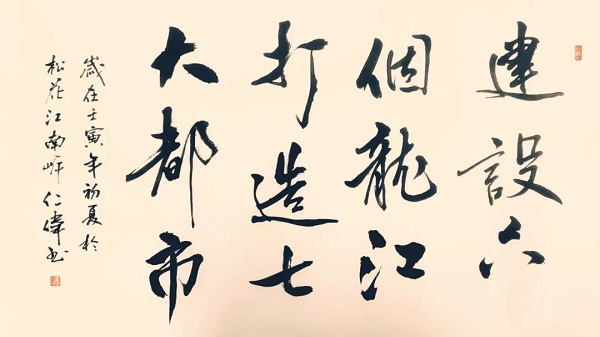 建設六
個龍江
打造七
大都市
歲在壬寅年初夏於
松花江南岸仁偉書